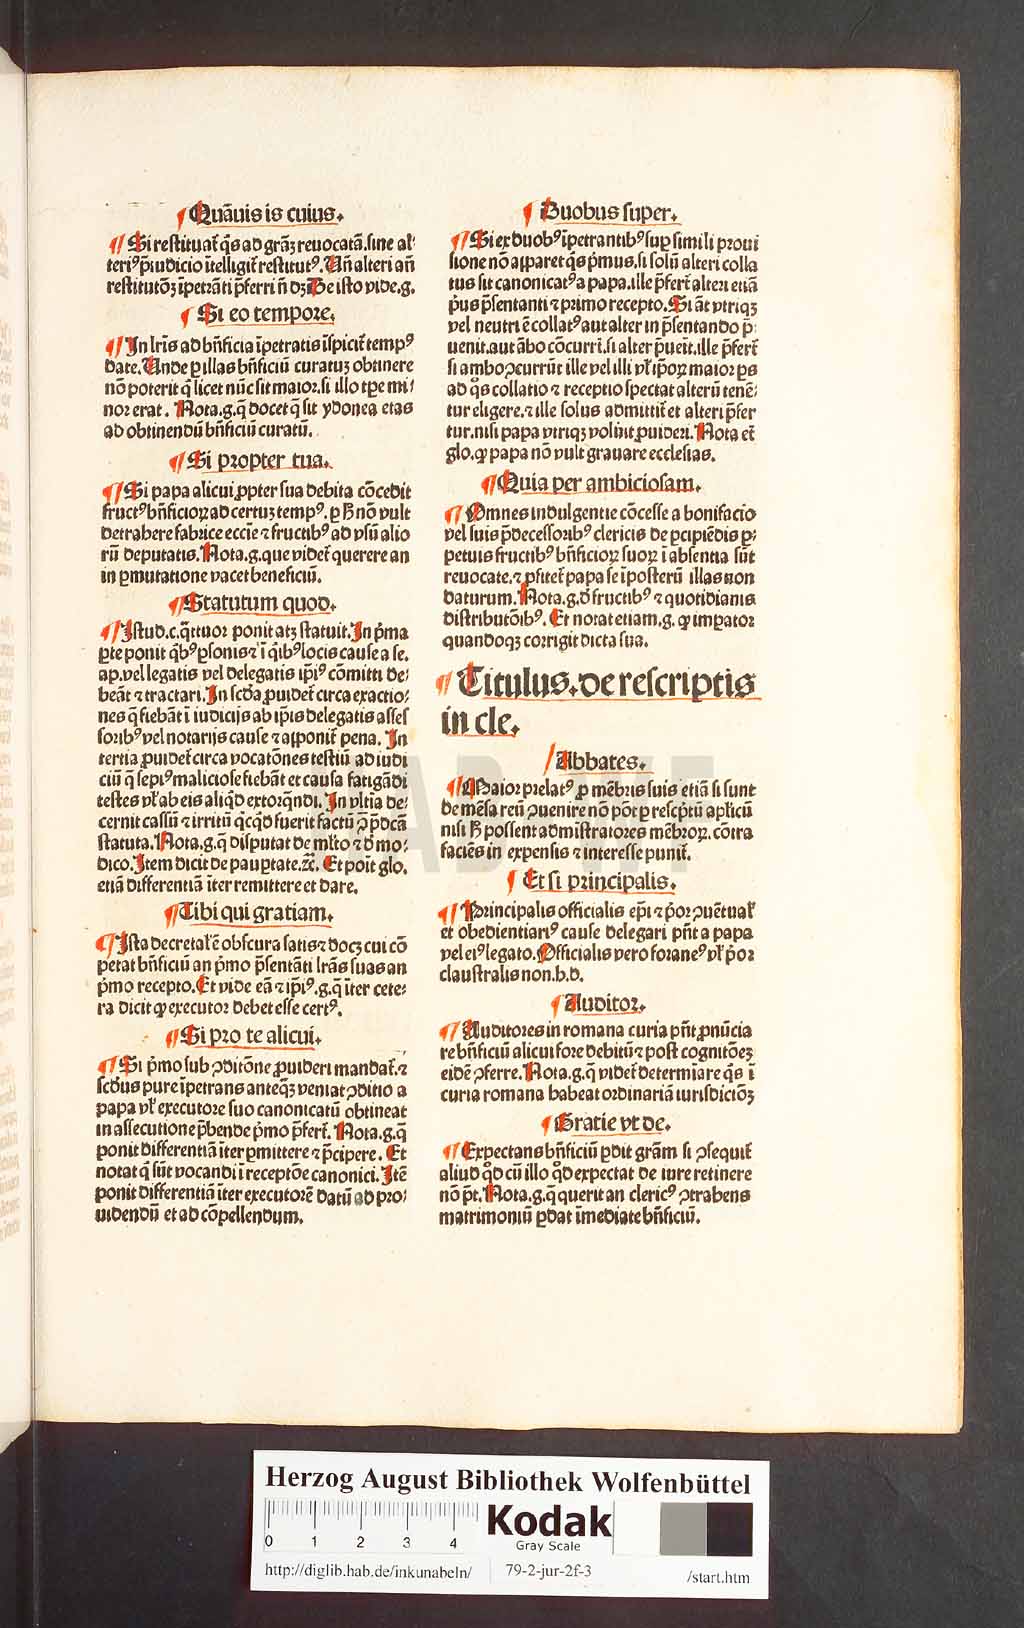 ¶ Quāuis is cuius.
¶ Si restituat᷑ q̄s ad grāȝ reuocatā.sine al⸗
teriꝰ p̄iudicio ītelligit᷑ restitutꝰ. Añ alteri añ
restitutōȝ īpetrāti p̄ferri ñ dȝ De isto vide.g.
¶ Si eo tempore.
¶ In lr̄is ad bn̄ficia īpetratis īspicit᷑ tempꝰ
date. Unde ꝑ illas bn̄ficiū curatuȝ obtinere
nō poterit q̄ licet nūc sit maior.si illo tꝑe mi⸗
nor erat. Nota.g.q̄ docet q̄ sit ydonea etas
ad obtinendū bn̄ficiū curatū.
¶ Si propter tua.
¶ Si papa alicui ꝓpter sua debita cōcedit
fructꝰ bn̄ficioꝝ ad certuȝ tempꝰ. ꝑ ħ nō vult
detrahere fabrice eccīe ⁊ fructibꝰ ad vsū alio
rū deputatis. Nota.g.que videt᷑ querere an
in ꝑmutatione vacet beneficiū.
¶ Statutum quod.
¶ Istud.c.q̄ttuor ponit atȝ statuit. In p̄ma
ꝑte ponit q̄bꝰ ꝑsonis ⁊ ī q̄ibꝰ locis cause a se.
ap.vel legatis vel delegatis ip̄iꝰ cōmitti de⸗
beāt ⁊ tractari. In scd̄a ꝓuidet᷑ circa exactio⸗
nes q̄ fiebāt ī iudicijs ab ip̄is delegatis asses
soribꝰ vel notarijs cause ⁊ apponit᷑ pena. In
tertia ꝓuidet᷑ circa vocatōnes testiū ad iudi
ciū q̄ sepiꝰ maliciose fiebāt et causa fatigādi
testes vl᷑ ab eis aliq̄d extorq̄ndi. In vltia de⸗
cernit cassū ⁊ irritū q̄cq̄d fuerit factū ↄ̄ p̄dcā
statuta. Nota.g.q̄ disputat de ml̄to ⁊ d̄ mo⸗
dico. Item dicit de pauꝑtate.⁊c̄. Et poīt glo.
etiā differentiā iter remittere et dare.
¶ Tibi qui gratiam.
¶ Ista decretal᷑ ē obscura satis ⁊ docȝ cui cō
petat bn̄ficiū an p̄mo p̄sentāti lr̄as suas an
p̄mo recepto. Et vide eā ⁊ ip̄iꝰ.g.q̄ iter cete⸗
ra dicit ꝙ executor debet esse certꝰ.
¶ Si pro te alicui.
¶ Si p̄mo sub ↄditōne ꝓuideri mandat᷑.⁊
scd̄us pure īpetrans anteq̄ȝ veniat ↄditio a
papa vl᷑ executore suo canonicatū obtineat
in assecutione p̄bende p̄mo p̄fert᷑. Nota.g.q̄
ponit differentiā iter ꝑmittere ⁊ p̄cipere. Et
notat q̄ sūt vocandi ī receptōe canonici. Itē
ponit differentiā iter executorē datū ad pro⸗
uidendū et ad cōpellendum.
¶ Duobus super.
¶ Si ex duobꝰ īpetrantibꝰ suꝑ simili proui
sione nō apparet q̄s p̄mus.si solū alteri colla
tus sit canonicatꝰ a papa.ille p̄fert᷑ alteri etiā
p̄us p̄sentanti ⁊ primo recepto. Si āt vtriqȝ
vel neutri ē collatꝰ aut alter in p̄sentando p̄⸗
uenit.aut ābo cōcurrūt.si alter p̄ueīt.ille p̄fert᷑
si ambo ↄcurrūt ille vel illi vl᷑ ip̄oꝝ maior ps
ad q̄s collatio ⁊ receptio spectat alterū tenē⸗
tur eligere.⁊ ille solus admittit᷑ et alteri p̄fer
tur.nisi papa vtriqȝ voluit ꝓuideri. Nota et᷑
glo.ꝙ papa nō vult grauare ecclesias.
¶ Quia per ambiciosam.
¶ Omnes indulgentie cōcesse a bonifacio
vel suis p̄decessoribꝰ clericis de ꝑcipiēdis ꝑ⸗
petuis fructibꝰ bn̄ficioꝝ suoꝝ ī absentia sūt
reuocate.⁊ ꝓfitet᷑ papa se īposterū illas non
daturum. Nota.g.d̄ fructibꝰ ⁊ quotidianis
distributōibꝰ. Et notat etiam.g. ꝙ imꝑator
quandoqȝ corrigit dicta sua.
¶ Titulus.de rescriptis
in cle.
Abbates.
¶ Maior prelatꝰ ꝓ mēbris suis etiā si sunt
de mēsa reū ↄuenire nō pōt ꝑ rescp̄tū apl̓icū
nisi ħ possent admīstratores mēbroꝝ. cōtra
faciēs in expensis ⁊ interesse punit᷑.
¶ Et si principalis.
¶ Principalis officialis ep̄i ⁊ p̄or ↄuētual᷑
et obedientiariꝰ cause delegari pn̄t a papa
vel eiꝰ legato. Officialis vero foraneꝰ vl᷑ p̄or
claustralis non.h.d.
¶ Auditor.
¶ Auditores in romana curia pn̄t ꝓnūcia
re bn̄ficiū alicui fore debitū ⁊ post cognitōeȝ
eidē ↄferre. Nota.g.q̄ videt᷑ determiare q̄s ī
curia romana habeat ordinariā iurisdictōȝ
¶ Gratie vt de.
¶ Expectans bn̄ficiū ꝑdit grām si ↄsequit᷑
aliud q̄d cū illo q̄d expectat de iure retinere
nō p̄t. Nota.g.q̄ querit an clericꝰ ↄtrahens
matrimoniū ꝑdat īmediate bn̄ficiū.
HAB WF
Herzog August Bibliothek Wolfenbüttel
0 1 2 3 4
Kodak
Gray Scale
http://diglib.hab.de/inkunabeln/ 79-2-jur-2f-3 /start.htm